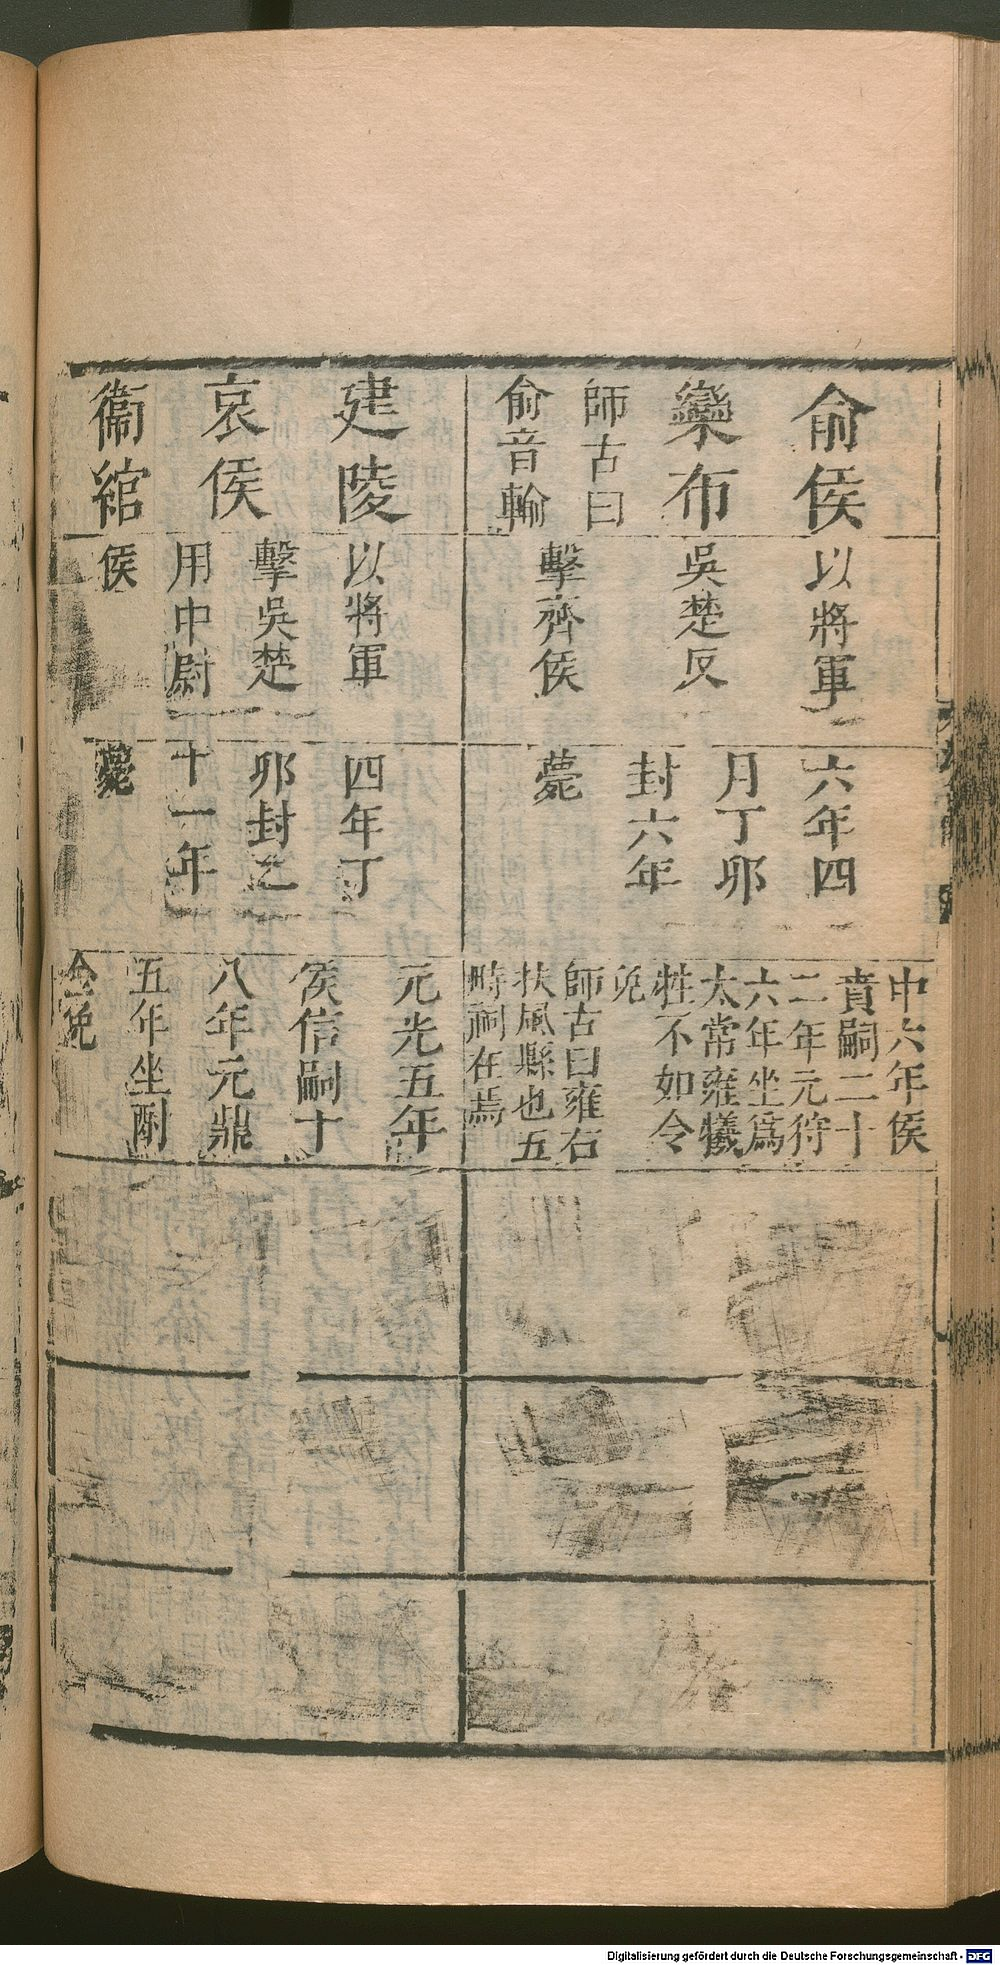 俞侯
欒布
師古曰
俞音輸
以將軍
吳楚反
擊齊侯
六年四
月丁卯
封六年
薨
中六年侯
賁嗣二十
二年元狩
六年坐爲
太常雍犧
牲不如令
免
師古曰雍右
扶風縣也五
畤祠在焉
建陵
哀侯
衞綰
以將軍
擊吳楚
用中尉
侯
四年丁
卯封二
十一年
薨
元光五年
侯信嗣十
八年元鼎
五年坐酎
金免
Digitalisierung gefördert durch die Deutsche Forschungsgemeinschaft - DFG